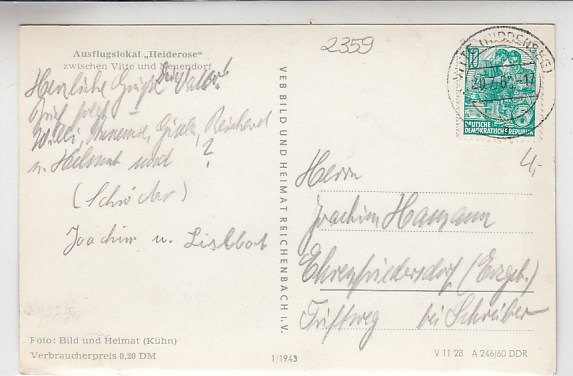 Ausflugslokal „Heiderose"
zwischen Vitte und Neuendorf
Herzliche Grüße
Willi, Gisela, Reinhard
u. Helmut und ?
(Schröder)
Joachim u. Liselbot
VEB BILD UND HEIMAT REICHENBACH I. V.
2359
10
DEUTSCHE
DEMOKRATISCHE REPUBLIK
(HIDDENSEE)
4,-
Herrn
Joachim Hamann
Ehrenfriedersdorf (Erzgeb.)
Triftweg bei Schreiber
Foto: Bild und Heimat (Kühn)
Verbraucherpreis 0,20 DM
1/1943
V 11 28 A 246/60 DDR